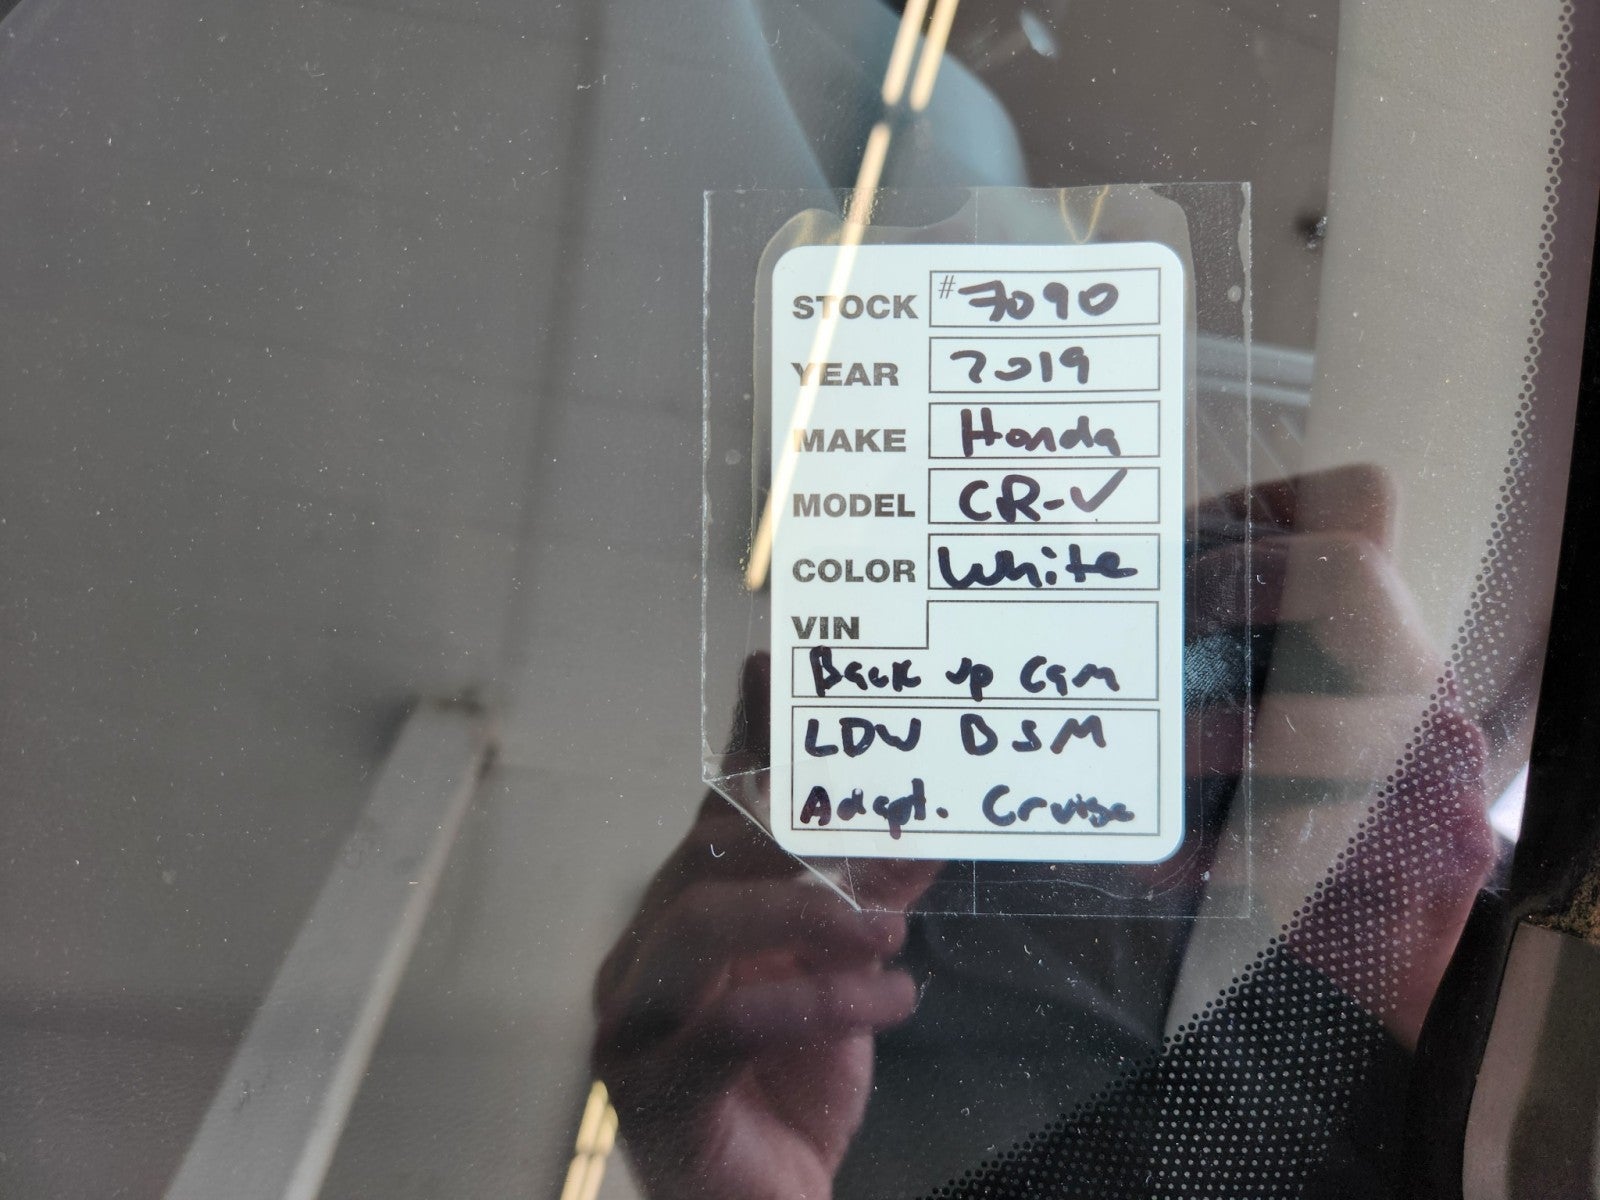 STOCK #7090
YEAR 2019
MAKE Honda
MODEL CR-V
COLOR White
VIN
Back up Cam
LDW BSM
Adapt. Cruise